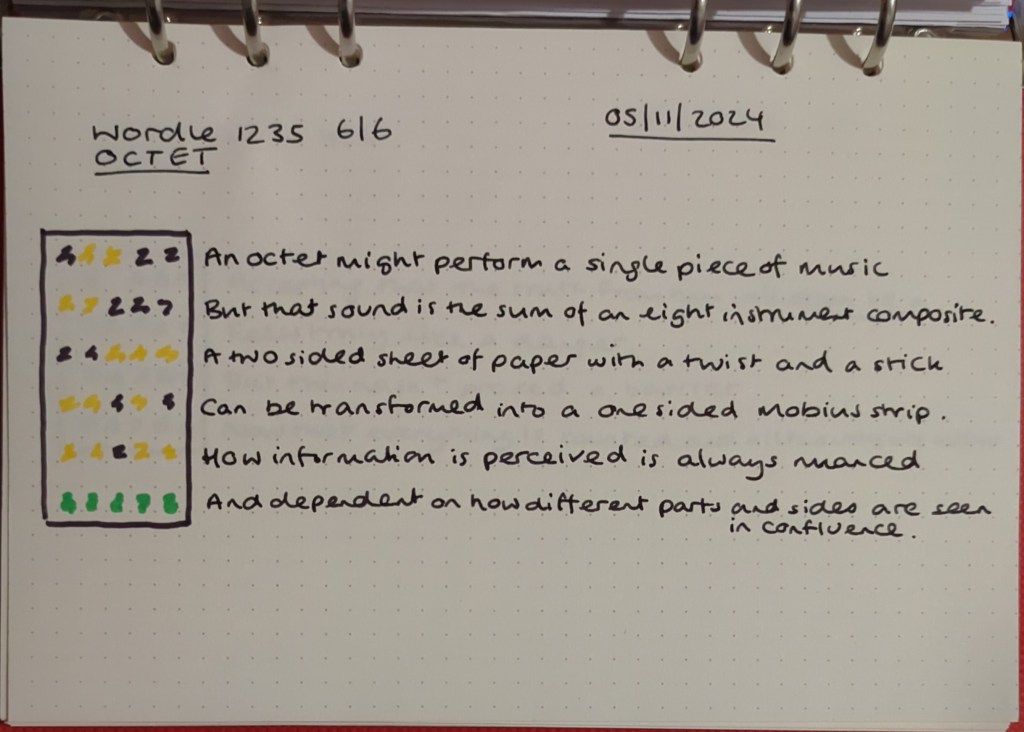 Wordle 1235 6/6
OCTET
05/11/2024
An octet might perform a single piece of music
But that sound is the sum of an eight instrument composite.
A two sided sheet of paper with a twist and a stick
Can be transformed into a one sided Mobius strip.
How information is perceived is always nuanced
And dependent on how different parts and sides are seen
in confluence.